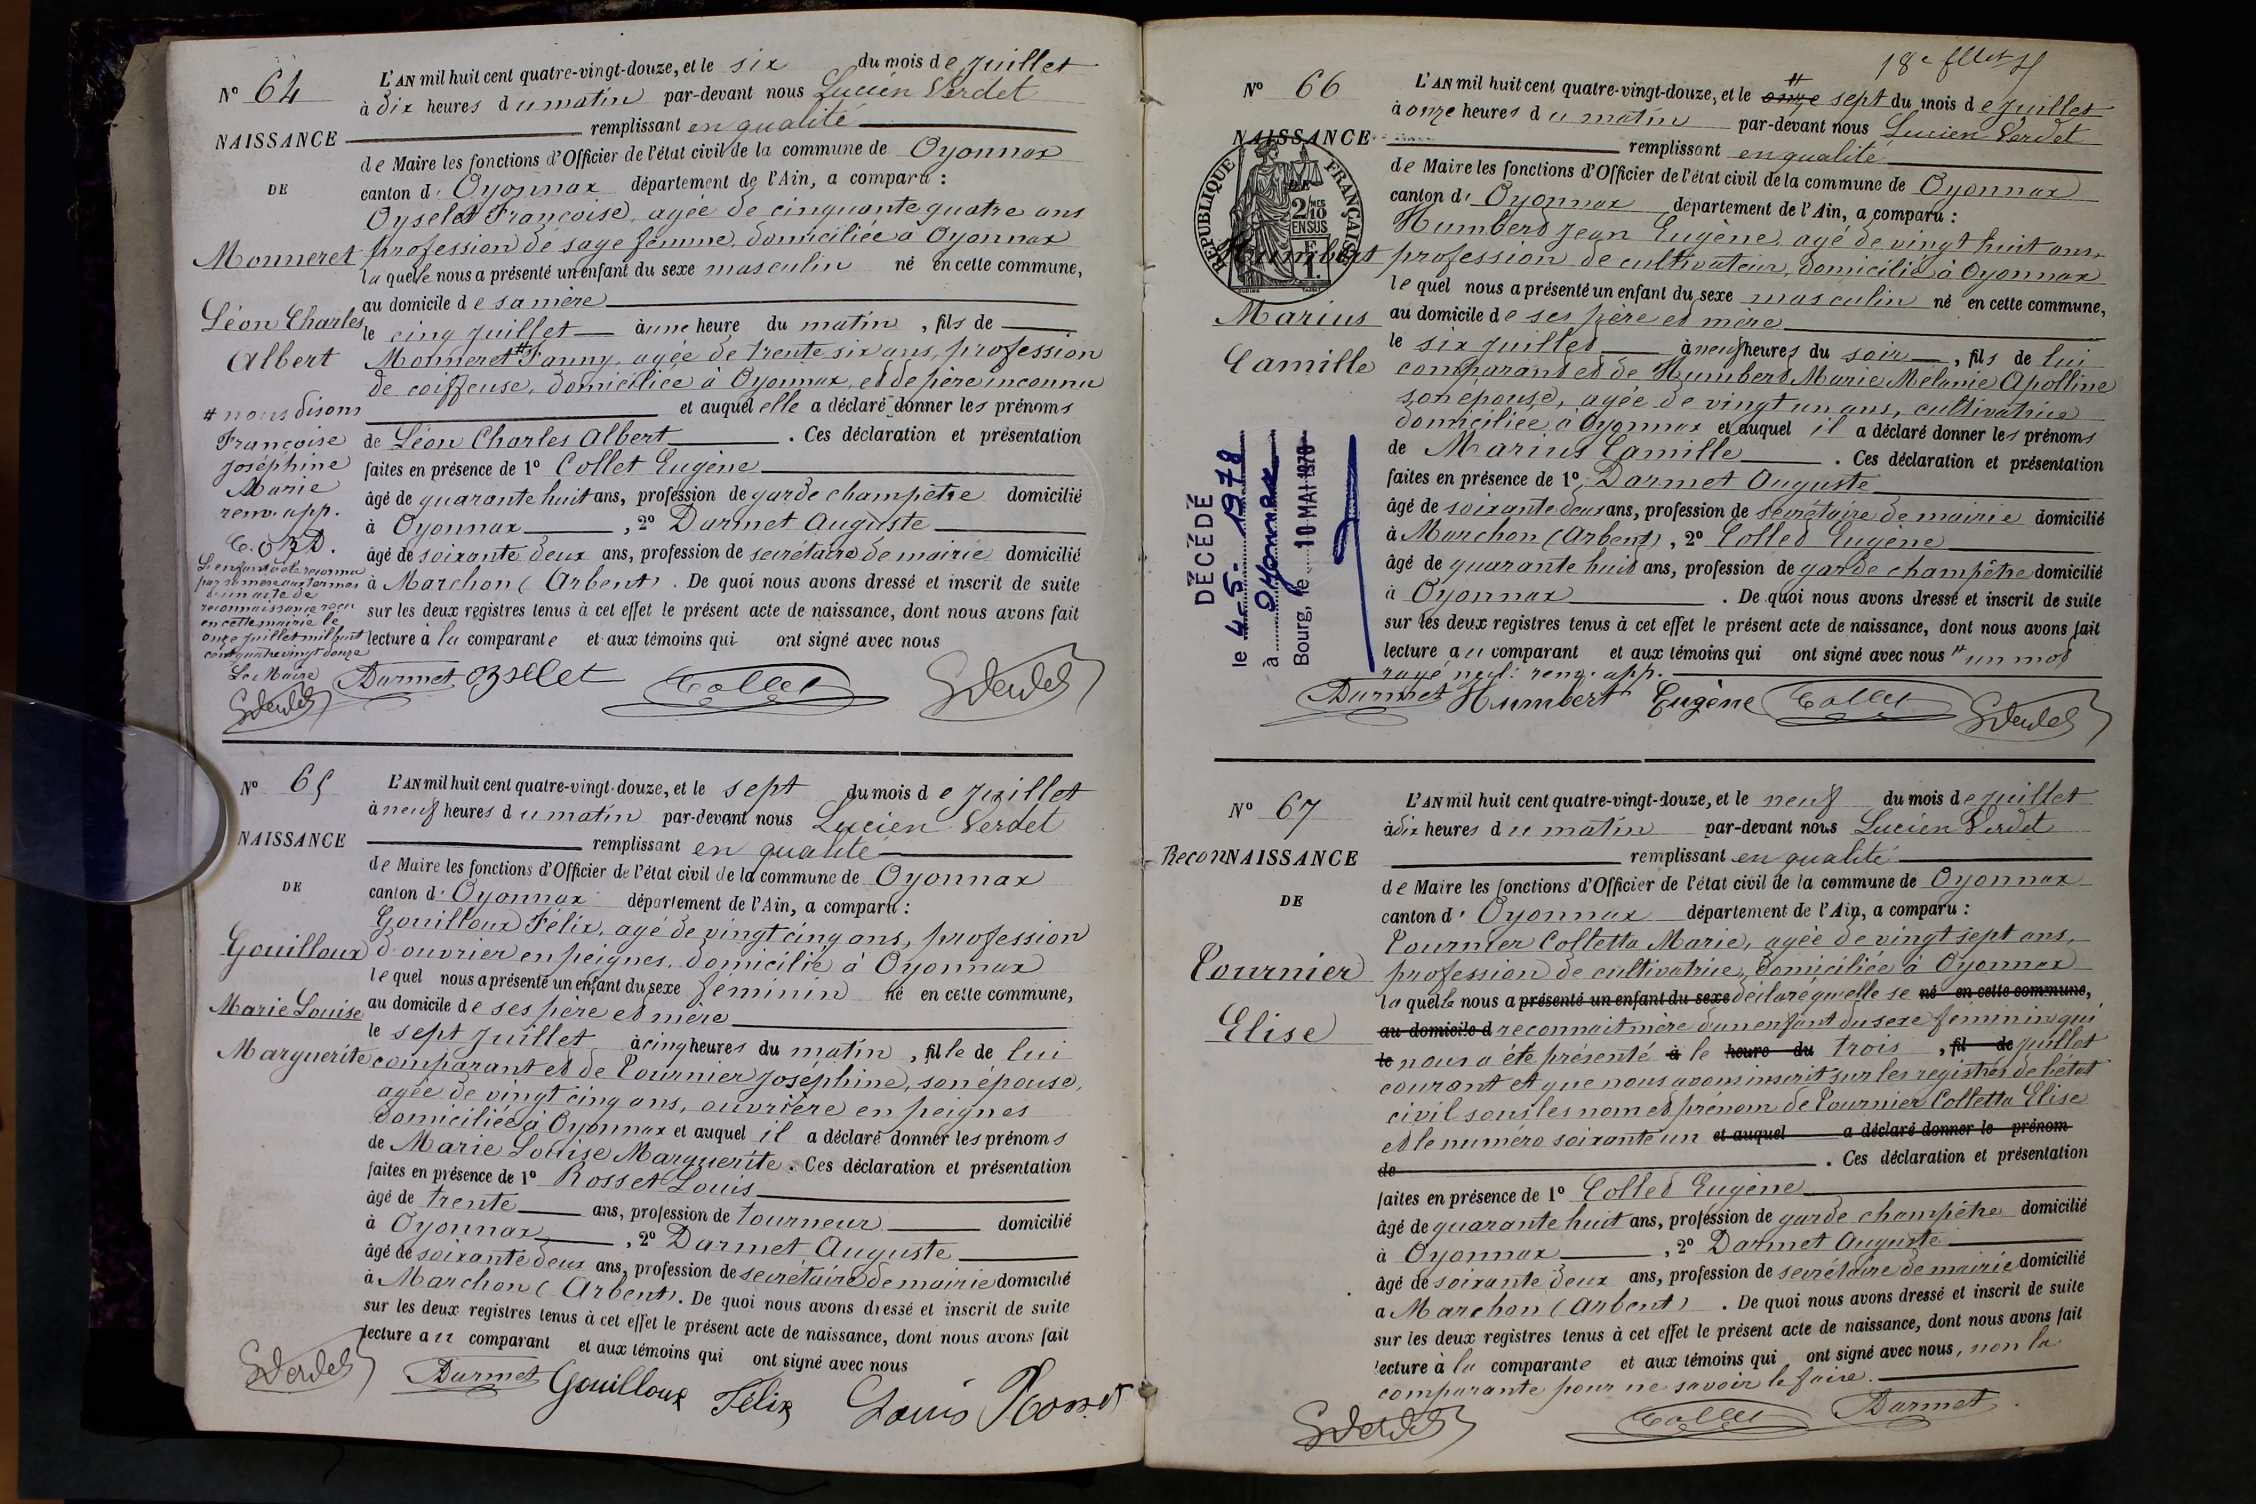 N° 64
NAISSANCE
DE
Monneret
Léon Charles
Albert
# nous disons
Françoise
Joséphine
Marie
renv. app.
C. O. L. D.
L'enfant a été reconnu
par sa mère aux termes
d'un acte de
reconnaissance reçu
en cette mairie le
onze juillet mil huit
cent quatre vingt douze
Le Maire
L'AN mil huit cent quatre-vingt-douze, et le six du mois de Juillet
à dix heures du matin par-devant nous Lucien Verdet
remplissant en qualité
de Maire les fonctions d'Officier de l'état civil de la commune de Oyonnax
canton d' Oyonnax département de l'Ain, a comparu :
Oyselet Françoise, agée de cinquante quatre ans
profession de sage femme, domiciliée à Oyonnax
la quelle nous a présenté un enfant du sexe masculin né en cette commune,
au domicile de sa mère
le cinq Juillet à une heure du matin, fils de
Monneret # Fanny, agée de trente six ans, profession
de coiffeuse, domiciliée à Oyonnax, et de père inconnu
et auquel elle a déclaré donner les prénoms
de Léon Charles Albert. Ces déclaration et présentation
faites en présence de 1° Collet Eugène
âgé de quarante huit ans, profession de garde champêtre domicilié
à Oyonnax, 2° Darmet Auguste
âgé de soixante deux ans, profession de secrétaire de mairie domicilié
à Marchon (Arbent). De quoi nous avons dressé et inscrit de suite
sur les deux registres tenus à cet effet le présent acte de naissance, dont nous avons fait
lecture à la comparante et aux témoins qui ont signé avec nous
Darmet Oyselet Collet Verdet
N° 65
NAISSANCE
DE
Gouilloux
Marie Louise
Marguerite
L'AN mil huit cent quatre-vingt-douze, et le sept du mois de Juillet
à neuf heures du matin par-devant nous Lucien Verdet
remplissant en qualité
de Maire les fonctions d'Officier de l'état civil de la commune de Oyonnax
canton d' Oyonnax département de l'Ain, a comparu :
Gouilloux Félix, agé de vingt cinq ans, profession
d'ouvrier en peignes, domicilié à Oyonnax
le quel nous a présenté un enfant du sexe féminin né en cette commune,
au domicile de ses père et mère
le sept Juillet à cinq heures du matin, fille de lui
comparant et de Tournier Joséphine, son épouse,
agée de vingt cinq ans, ouvrière en peignes
domiciliée à Oyonnax et auquel il a déclaré donner les prénoms
de Marie Louise Marguerite. Ces déclaration et présentation
faites en présence de 1° Rosset Louis
âgé de trente ans, profession de tourneur domicilié
à Oyonnax, 2° Darmet Auguste
âgé de soixante deux ans, profession de secrétaire de mairie domicilié
à Marchon (Arbent). De quoi nous avons dressé et inscrit de suite
sur les deux registres tenus à cet effet le présent acte de naissance, dont nous avons fait
lecture au comparant et aux témoins qui ont signé avec nous
Verdet Darmet Gouilloux Félix Louis Rosset
18e fllet
N° 66
NAISSANCE
RÉPUBLIQUE FRANÇAISE
2/10 EN SUS
Humbert
Marius
Camille
DÉCÉDÉ
le 4-5-1978
à Oyonnax
Bourg, le 10 MAI 1978
L'AN mil huit cent quatre-vingt-douze, et le onze # sept du mois de Juillet
à onze heures du matin par-devant nous Lucien Verdet
remplissant en qualité
de Maire les fonctions d'Officier de l'état civil de la commune de Oyonnax
canton d' Oyonnax département de l'Ain, a comparu :
Humbert Jean Eugène, agé de vingt huit ans,
profession de cultivateur, domicilié à Oyonnax
le quel nous a présenté un enfant du sexe masculin né en cette commune,
au domicile de ses père et mère
le six Juillet à neuf heures du soir, fils de lui
comparant et de Humbert Marie Mélanie Apolline
son épouse, agée de vingt un ans, cultivatrice
domiciliée à Oyonnax et auquel il a déclaré donner les prénoms
de Marius Camille. Ces déclaration et présentation
faites en présence de 1° Darmet Auguste
âgé de soixante deux ans, profession de secrétaire de mairie domicilié
à Marchon (Arbent), 2° Collet Eugène
âgé de quarante huit ans, profession de garde champêtre domicilié
à Oyonnax. De quoi nous avons dressé et inscrit de suite
sur les deux registres tenus à cet effet le présent acte de naissance, dont nous avons fait
lecture au comparant et aux témoins qui ont signé avec nous # un mot
rayé nul: renv. app.
Darmet Humbert Eugène Collet Verdet
N° 67
ReconNAISSANCE
DE
Tournier
Elise
L'AN mil huit cent quatre-vingt-douze, et le neuf du mois de Juillet
à dix heures du matin par-devant nous Lucien Verdet
remplissant en qualité
de Maire les fonctions d'Officier de l'état civil de la commune de Oyonnax
canton d' Oyonnax département de l'Ain, a comparu :
Tournier Colletta Marie, agée de vingt sept ans,
profession de cultivatrice, domiciliée à Oyonnax
la quelle nous a présenté un enfant du sexe déclaré qu'elle se né en cette commune,
au domicile d reconnait mère d'un enfant du sexe féminin qui
le nous a été présenté à le heure du trois, fil de juillet
courant et que nous avons inscrit sur les registres de l'état
civil sous les nom et prénom de Tournier Colletta Elise
et le numéro soixante un et auquel a déclaré donner le prénom
de. Ces déclaration et présentation
faites en présence de 1° Collet Eugène
âgé de quarante huit ans, profession de garde champêtre domicilié
à Oyonnax, 2° Darmet Auguste
âgé de soixante deux ans, profession de secrétaire de mairie domicilié
à Marchon (Arbent). De quoi nous avons dressé et inscrit de suite
sur les deux registres tenus à cet effet le présent acte de naissance, dont nous avons fait
lecture à la comparante et aux témoins qui ont signé avec nous, non la
comparante pour ne savoir le faire.
Verdet Collet Darmet